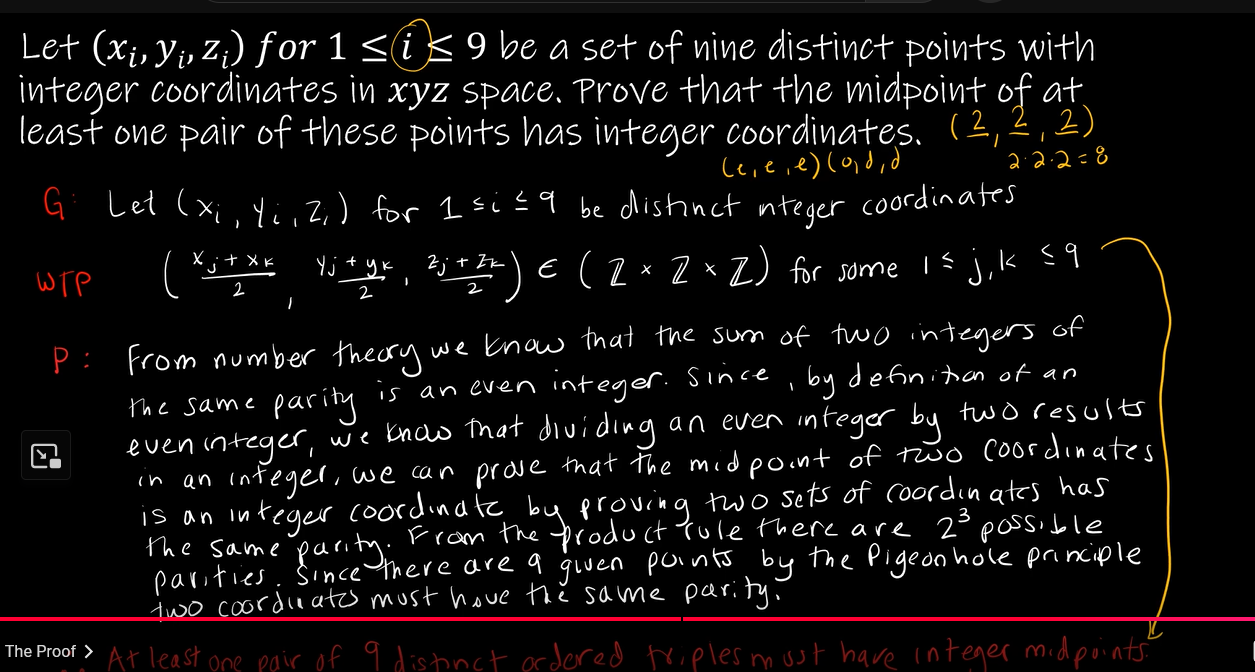 Let (xᵢ, yᵢ, zᵢ) for 1 ≤ i ≤ 9 be a set of nine distinct points with
integer coordinates in xyz space. Prove that the midpoint of at
least one pair of these points has integer coordinates. (2, 2, 2)
(e, e, e) (o, d, d 2·2·2=8
G: Let (xᵢ, yᵢ, zᵢ) for 1 ≤ i ≤ 9 be distinct integer coordinates
WTP ( (xⱼ + xₖ)/2 , (yⱼ + yₖ)/2 , (zⱼ + zₖ)/2 ) ∈ (ℤ × ℤ × ℤ) for some 1 ≤ j,k ≤ 9
P: From number theory we know that the sum of two integers of
the same parity is an even integer. Since, by definition of an
even integer, we know that dividing an even integer by two results
in an integer, we can prove that the midpoint of two coordinates
is an integer coordinate by proving two sets of coordinates has
the same parity. From the product rule there are 2³ possible
parities. Since there are 9 given points by the Pigeonhole principle
two coordinates must have the same parity.
The Proof >
∴ At least one pair of 9 distinct ordered triples must have integer midpoints.